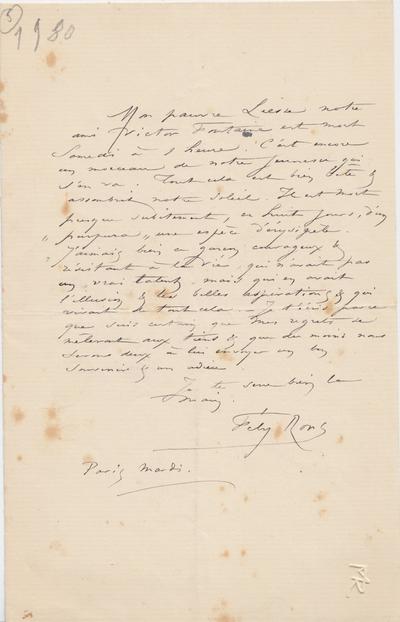 (5)
1980
Mon pauvre Liesse notre
ami Victor Fontaine est mort
Samedi à 1 heure. C'est encore
un morceau de notre jeunesse qui
s'en va ! Tout cela est bien bête &
assombrit notre soleil. Il est mort
presque subitement, en huit jours, d'un
"purpura", une espèce d'érysipèle.
J'aimais bien ce garçon courageux &
résistant à la vie, qui n'avait pas
un vrai talent, mais qui en avait
l'illusion & les belles aspirations & qui
vivait de tout cela. Je t'écris parce
que suis certain que mes regrets se
mêleront aux tiens & que du moins nous
serons deux à lui envoyer un bon
souvenir & un adieu.
Je te serre bien la
main.
Fély Rops
Paris mardi.